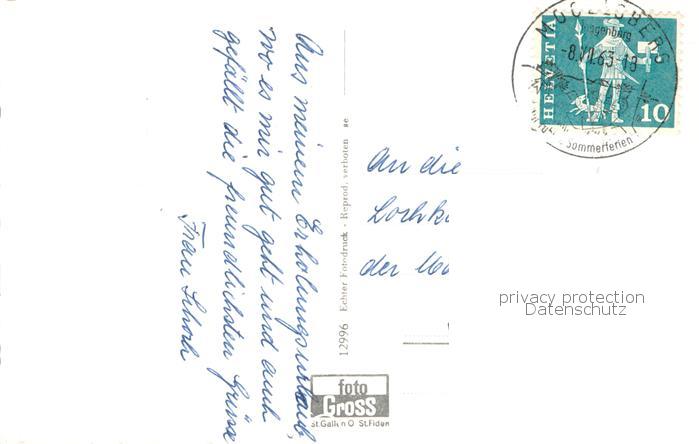 Aus meinem Erholungsurlaub,
wo es mir gut geht und auch
gefällt die freundlichsten Grüsse
Frau
12996 Echter Fotodruck - Reprod. verboten
An die
der
foto
Gross
St.Gallen O St.Fiden
MOGELSBERG
-8.VII.63-18
Sommerferien
HELVETIA
10
privacy protection
Datenschutz